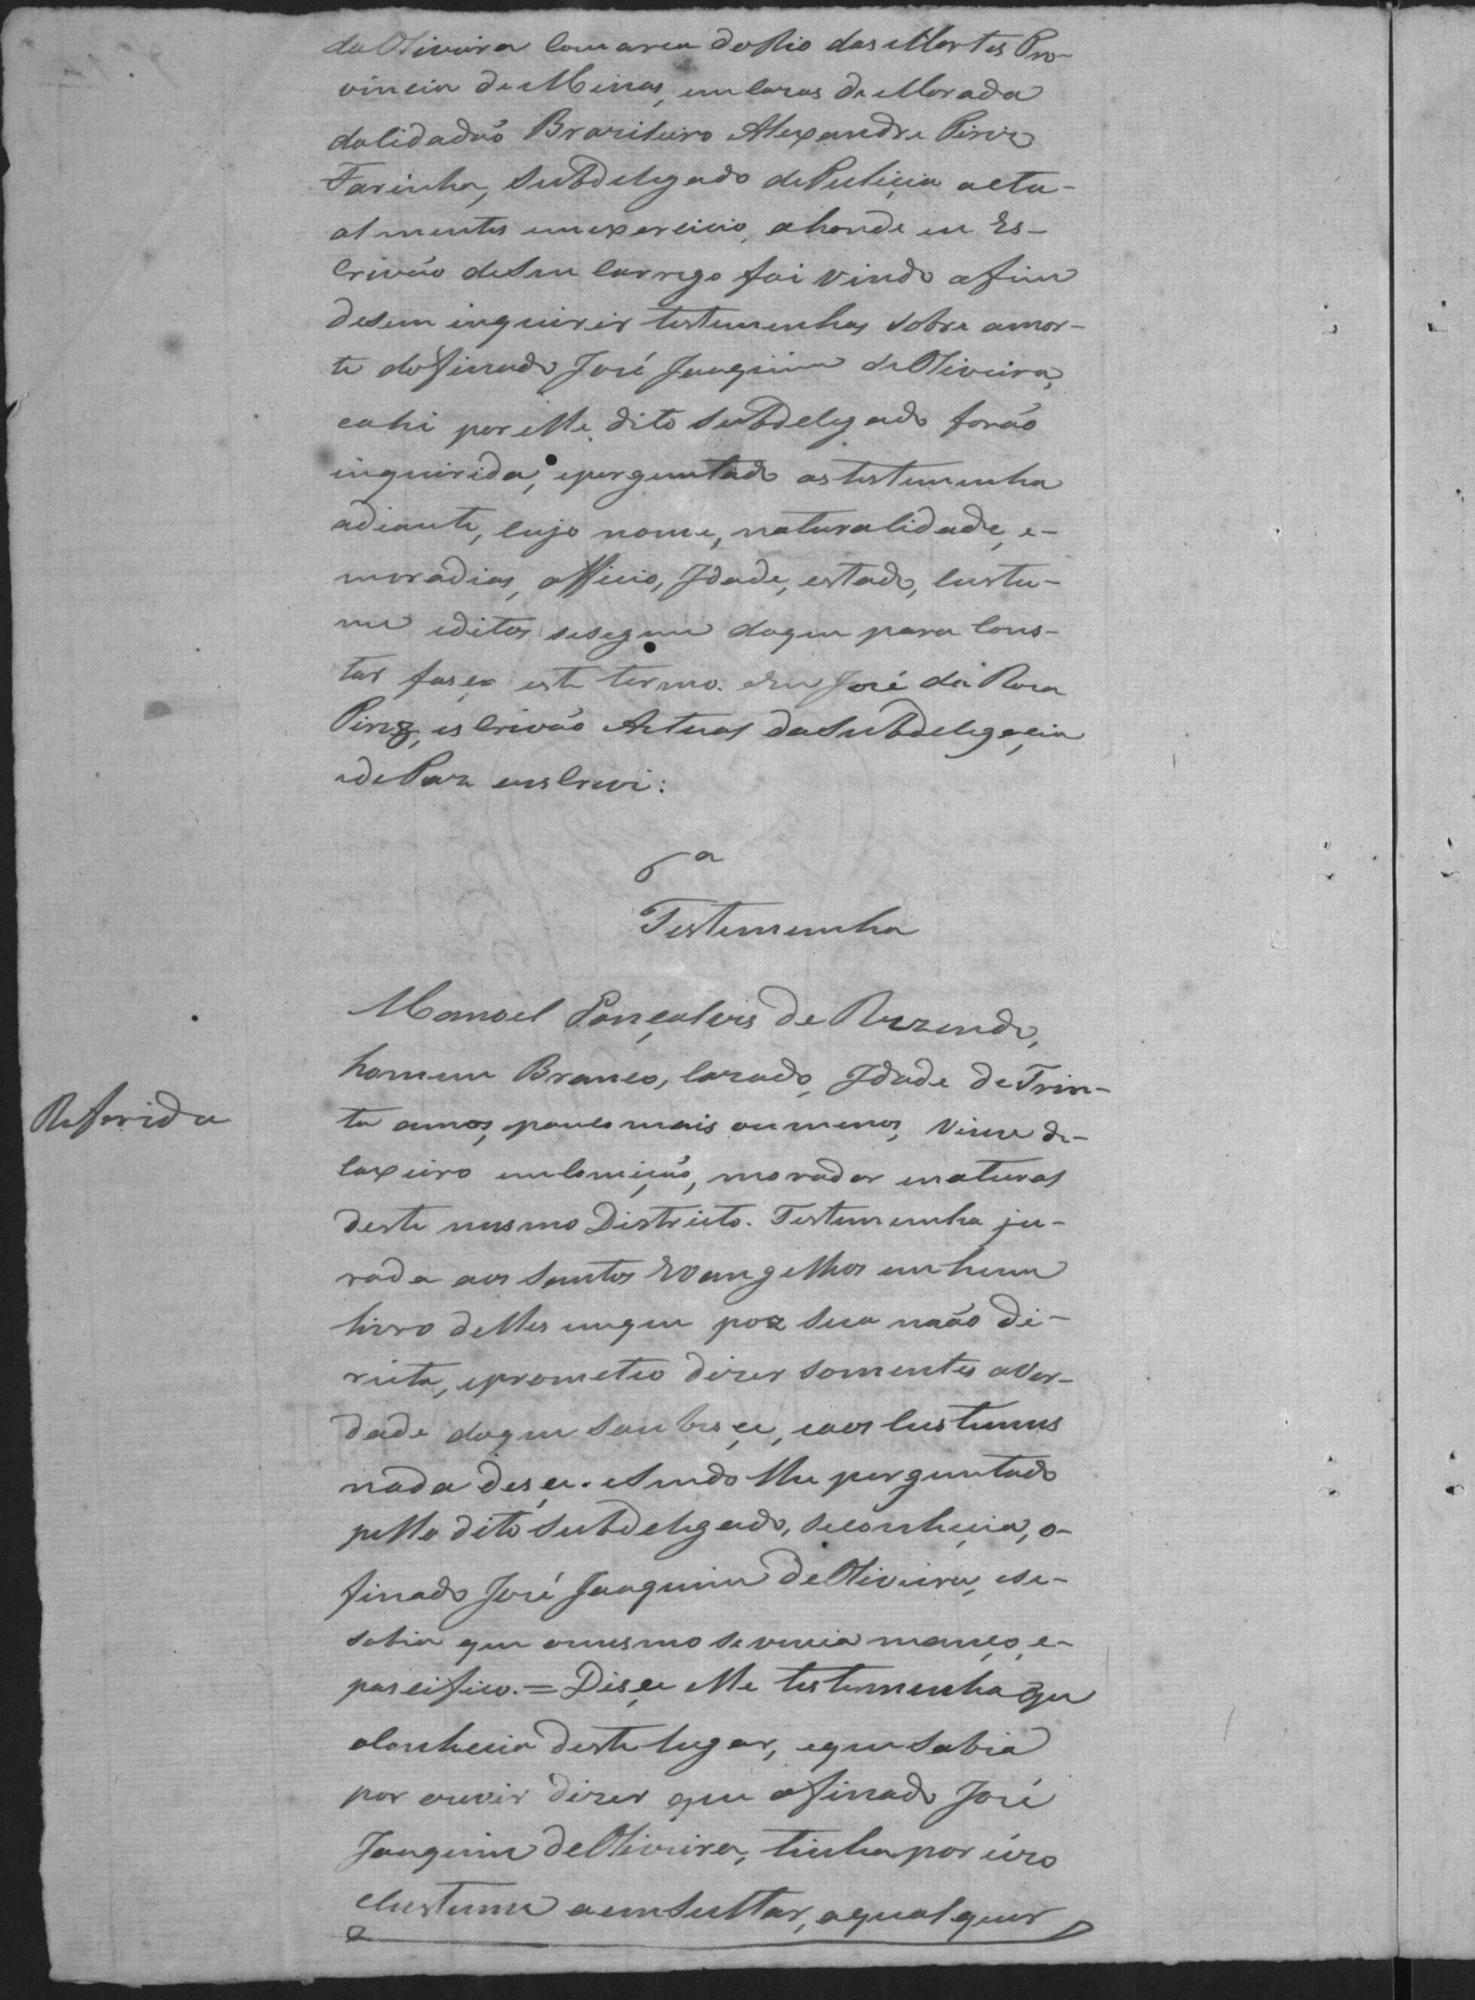 da Oliveira Comarca do Rio das Mortes Pro-
vincia de Minas, em Casas de Morada
do Cidadão Brazileiro Alexandre Pires
Farinha, Subdelegado de Pulicia actu-
almentes em exercicio, ahonde eu Es-
crivão de Seu Carrego fui vindo afim
deSem inquirir testemunhas Sobre amor-
te do finado José Joaquim de Oliveira,
eahi por elle dito Subdelegado forão
inquirida, eperguntado as testemunha
adiante, Cujo nome, naturalidade, e-
moradias, officio, Idade, estado, Custu-
me editos se segue doque para Cons-
tar faser este termo. Eu José da Roza
Pires, esCrivão Actual da Subdelegacia
ede Paz eusCrevi:
6ª
Testemunha
Manoel Gonçalves de Rezende,
homem Branco, Cazado, Idade de Trin-
ta annos, pouco mais ou menos, Vive de-
Caxeiro em Comição, morador enatural
deste mesmo Districto. Testemunha ju-
Referida
rada aos Santos Evangelhos em hum
livro delles emque poz Sua mão di-
reita, eprometeo dizer Somentes aVer-
dade doque Soubesçe, eaos Custumes
nada desçe. eSendo lhe perguntado
pello dito Subdelegado, SeConheçia, o-
finado José Joaquim de Oliveira, ese-
Sabia que omesmo Se vivia manço, e-
passifico. = Disçe elle testemunha que
oConhecia deste lugar, eque Sabia
por ouvir dizer que ofinado José
Joaquim de Oliveira, tinha por
Custume aemSultar, aqualquer